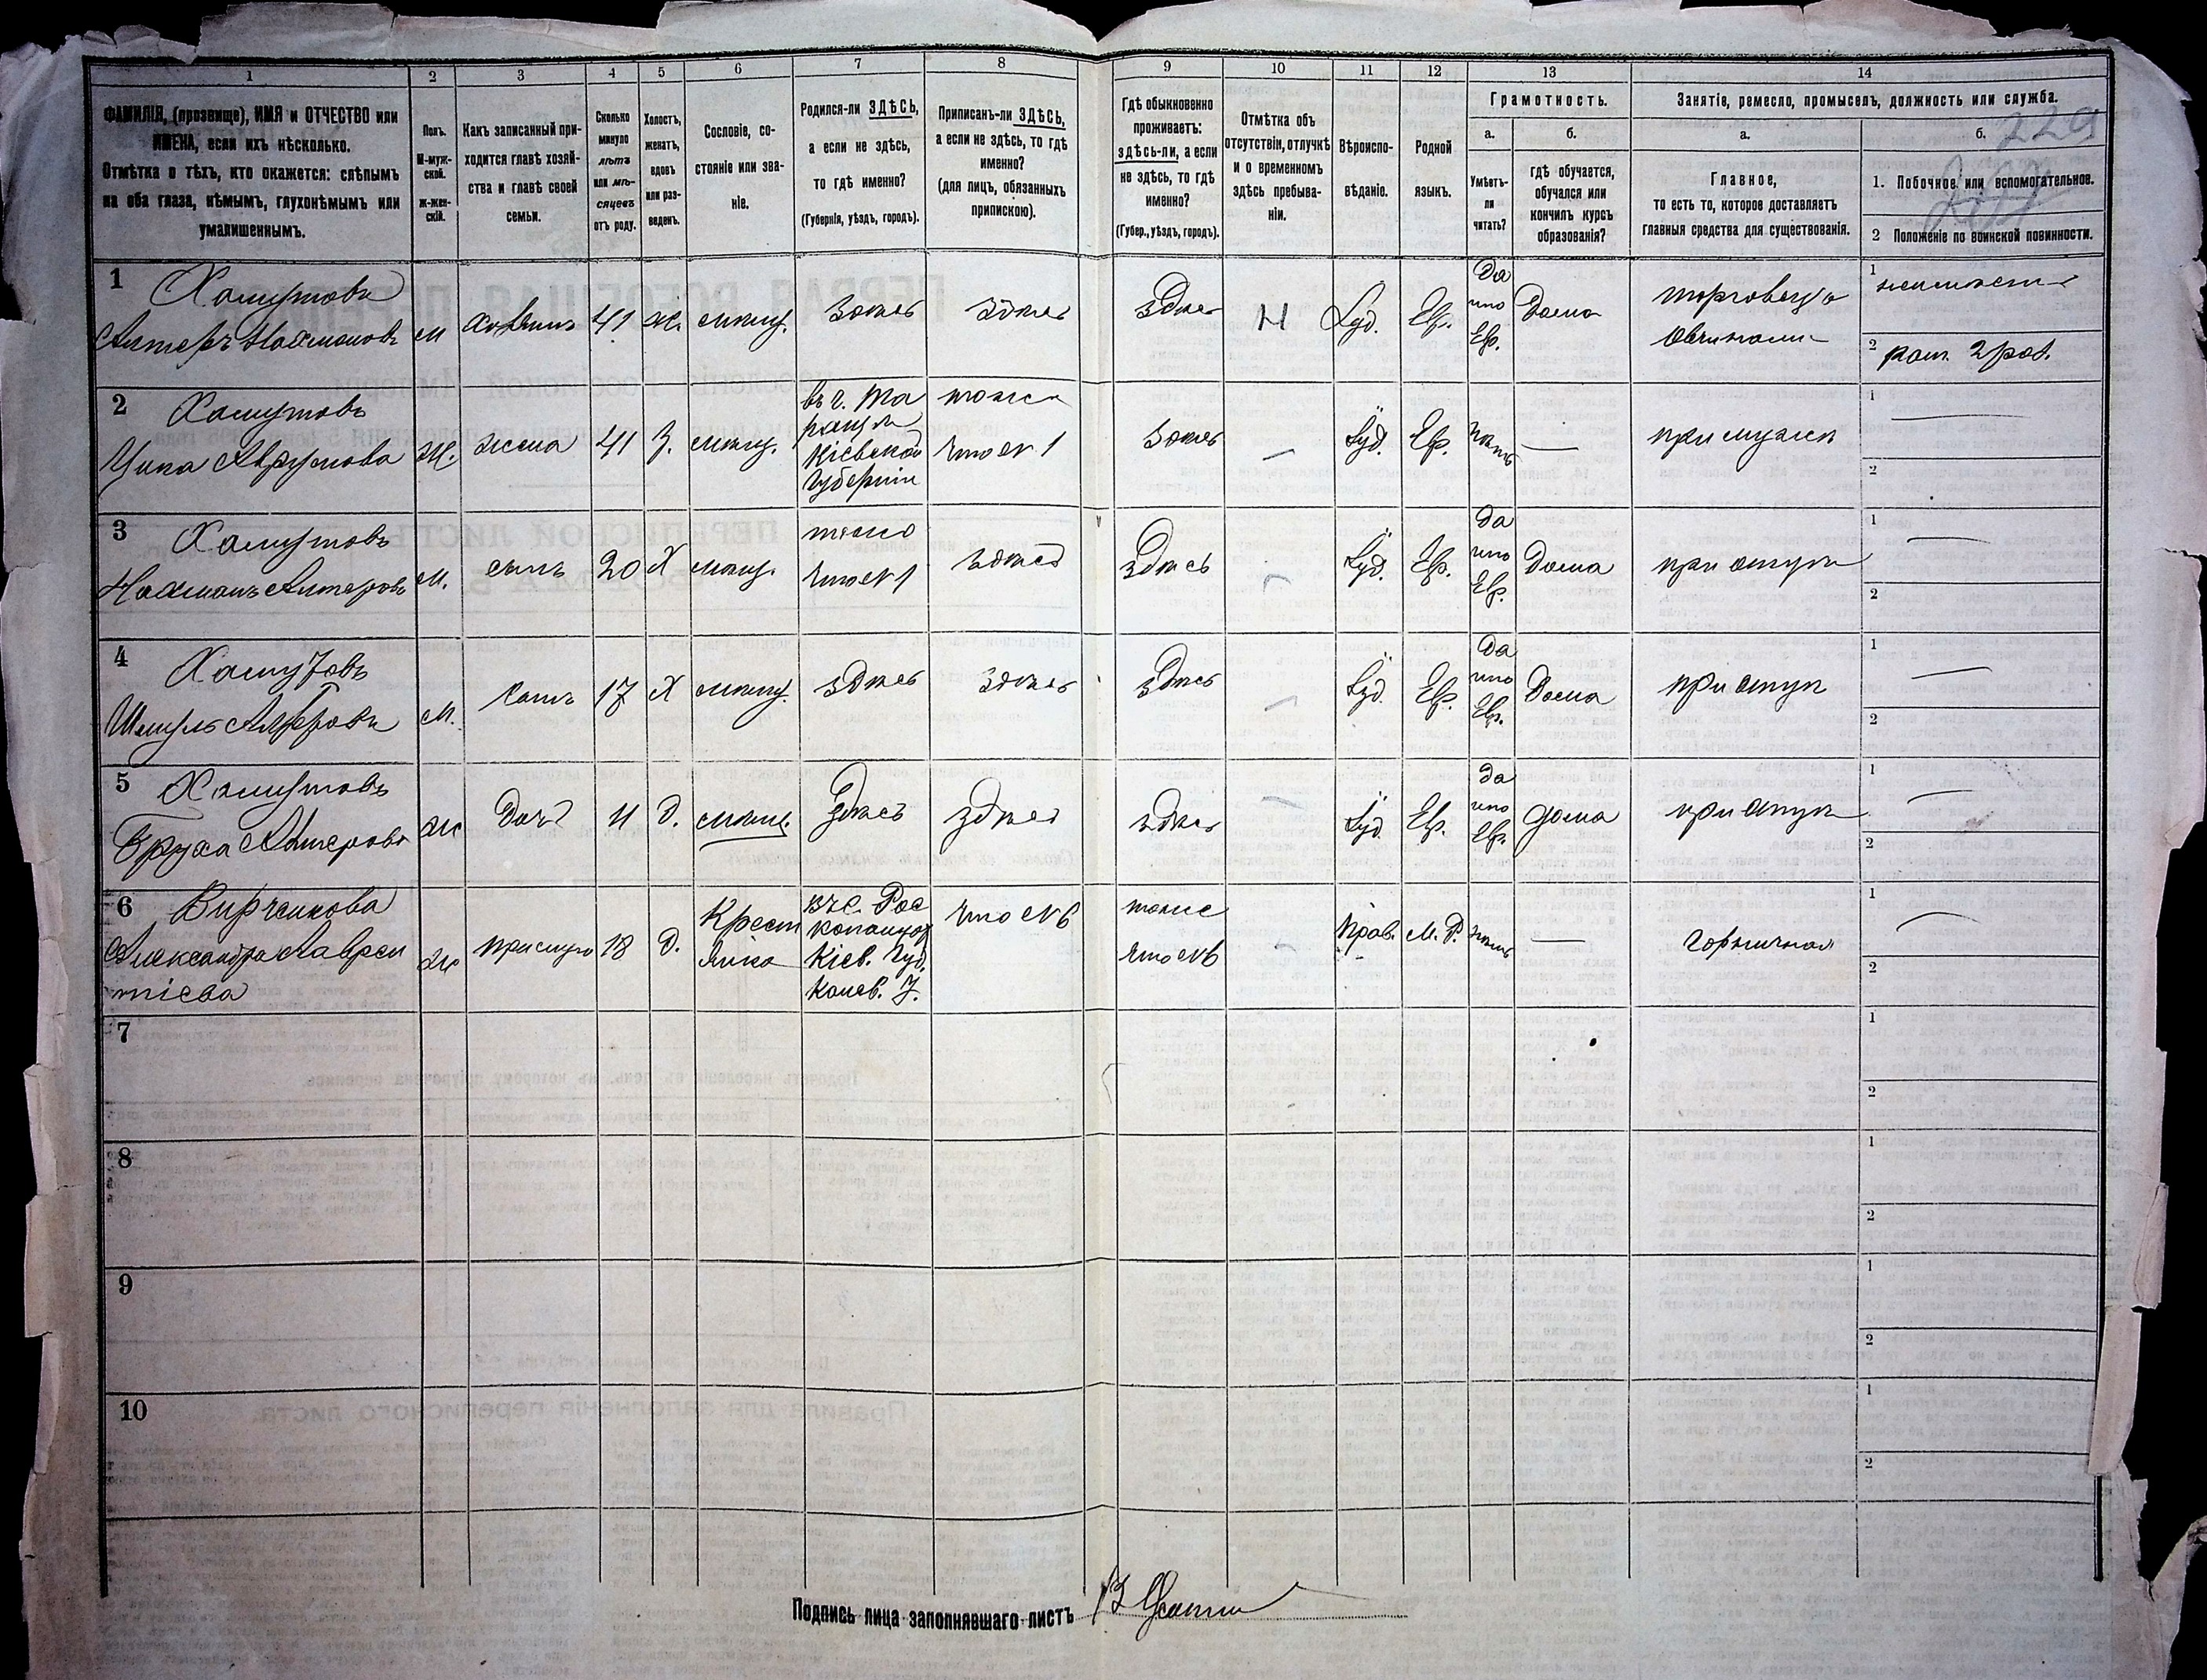 1 2 3 4 5 6 7 8 9 10 11 12 13 14
ФАМИЛІЯ, (прозвище), ИМЯ и ОТЧЕСТВО или
ИМЕНА, если ихъ нѣсколько.
Отмѣтка о тѣхъ, кто окажется: слѣпымъ
на оба глаза, нѣмымъ, глухонѣмымъ или
умалишеннымъ.
Полъ.
М-муж-
ской.
ж-жен-
скій.
Какъ записанный при-
ходится главѣ хозяй-
ства и главѣ своей
семьи.
Сколько
минуло
лѣтъ
или мѣ-
сяцевъ
отъ роду.
Холостъ,
женатъ,
вдовъ
или раз-
веденъ.
Сословіе, со-
стояніе или зва-
ніе.
Родился-ли ЗДѢСЬ,
а если не здѣсь,
то гдѣ именно?
(Губернія, уѣздъ, городъ).
Приписанъ-ли ЗДѢСЬ,
а если не здѣсь, то гдѣ
именно?
(для лицъ, обязанныхъ
припискою).
Гдѣ обыкновенно
проживаетъ:
здѣсь-ли, а если
не здѣсь, то гдѣ
именно?
(Губер., уѣздъ, городъ).
Отмѣтка объ
отсутствіи, отлучкѣ
и о временномъ
здѣсь пребыва-
ніи.
Вѣроиспо-
вѣданіе.
Родной
языкъ.
Грамотность.
а.
Умѣетъ-
ли
читать?
б.
гдѣ обучается,
обучался или
кончилъ курсъ
образованія?
Занятіе, ремесло, промыселъ, должность или служба.
а.
Главное,
то есть то, которое доставляетъ
главныя средства для существованія.
б.
229
1. Побочное или вспомогательное.
2 Положеніе по воинской повинности.
1 Хамутовъ
Алтеръ Нахмановъ
м
хозяинъ
41
ж.
мѣщ.
здѣсь
здѣсь
здѣсь
Н
Iуд.
Ев.
Да
по
Ев.
Дома
торговецъ
овчинами
1
2 рат. 2 раз.
2 Хамутовъ
Ципа Аврумова
Ж.
жена
41
З.
мѣщ.
въ г. Та
раща
Кіевской
Губерніи
тоже
что №1
здѣсь
—
Iуд.
Ев.
нѣтъ
—
при мужѣ
1 —
2
3 Хамутовъ
Нахманъ Алтеровъ
М.
сынъ
20
Х
мѣщ.
тоже
что №1
здѣсь
здѣсь
—
Iуд.
Ев.
да
по
Ев.
Дома
при отцѣ
1 —
2
4 Хамутовъ
Шмуль Алтеровъ
М.
сынъ
17
Х
мѣщ.
здѣсь
здѣсь
здѣсь
—
Iуд.
Ев.
да
по
Ев.
Дома
при отцѣ
1 —
2
5 Хамутовъ
Бруха Алтерова
Ж
дочь
11
д.
мѣщ.
здѣсь
здѣсь
здѣсь
—
Iуд.
Ев.
да
по
Ев.
дома
при отцѣ
1 —
2
6
Александра Лаврен
тіева
Ж
прислуга
18
д.
Крест
янка
Кіев. Губ.
Канев. У.
что №6
тоже
что №6
Прав.
М. Р.
нѣтъ
—
горничная
1 —
2
7 1
2
8 1
2
9 1
2
10 1
2
Подпись лица заполнявшаго листъ